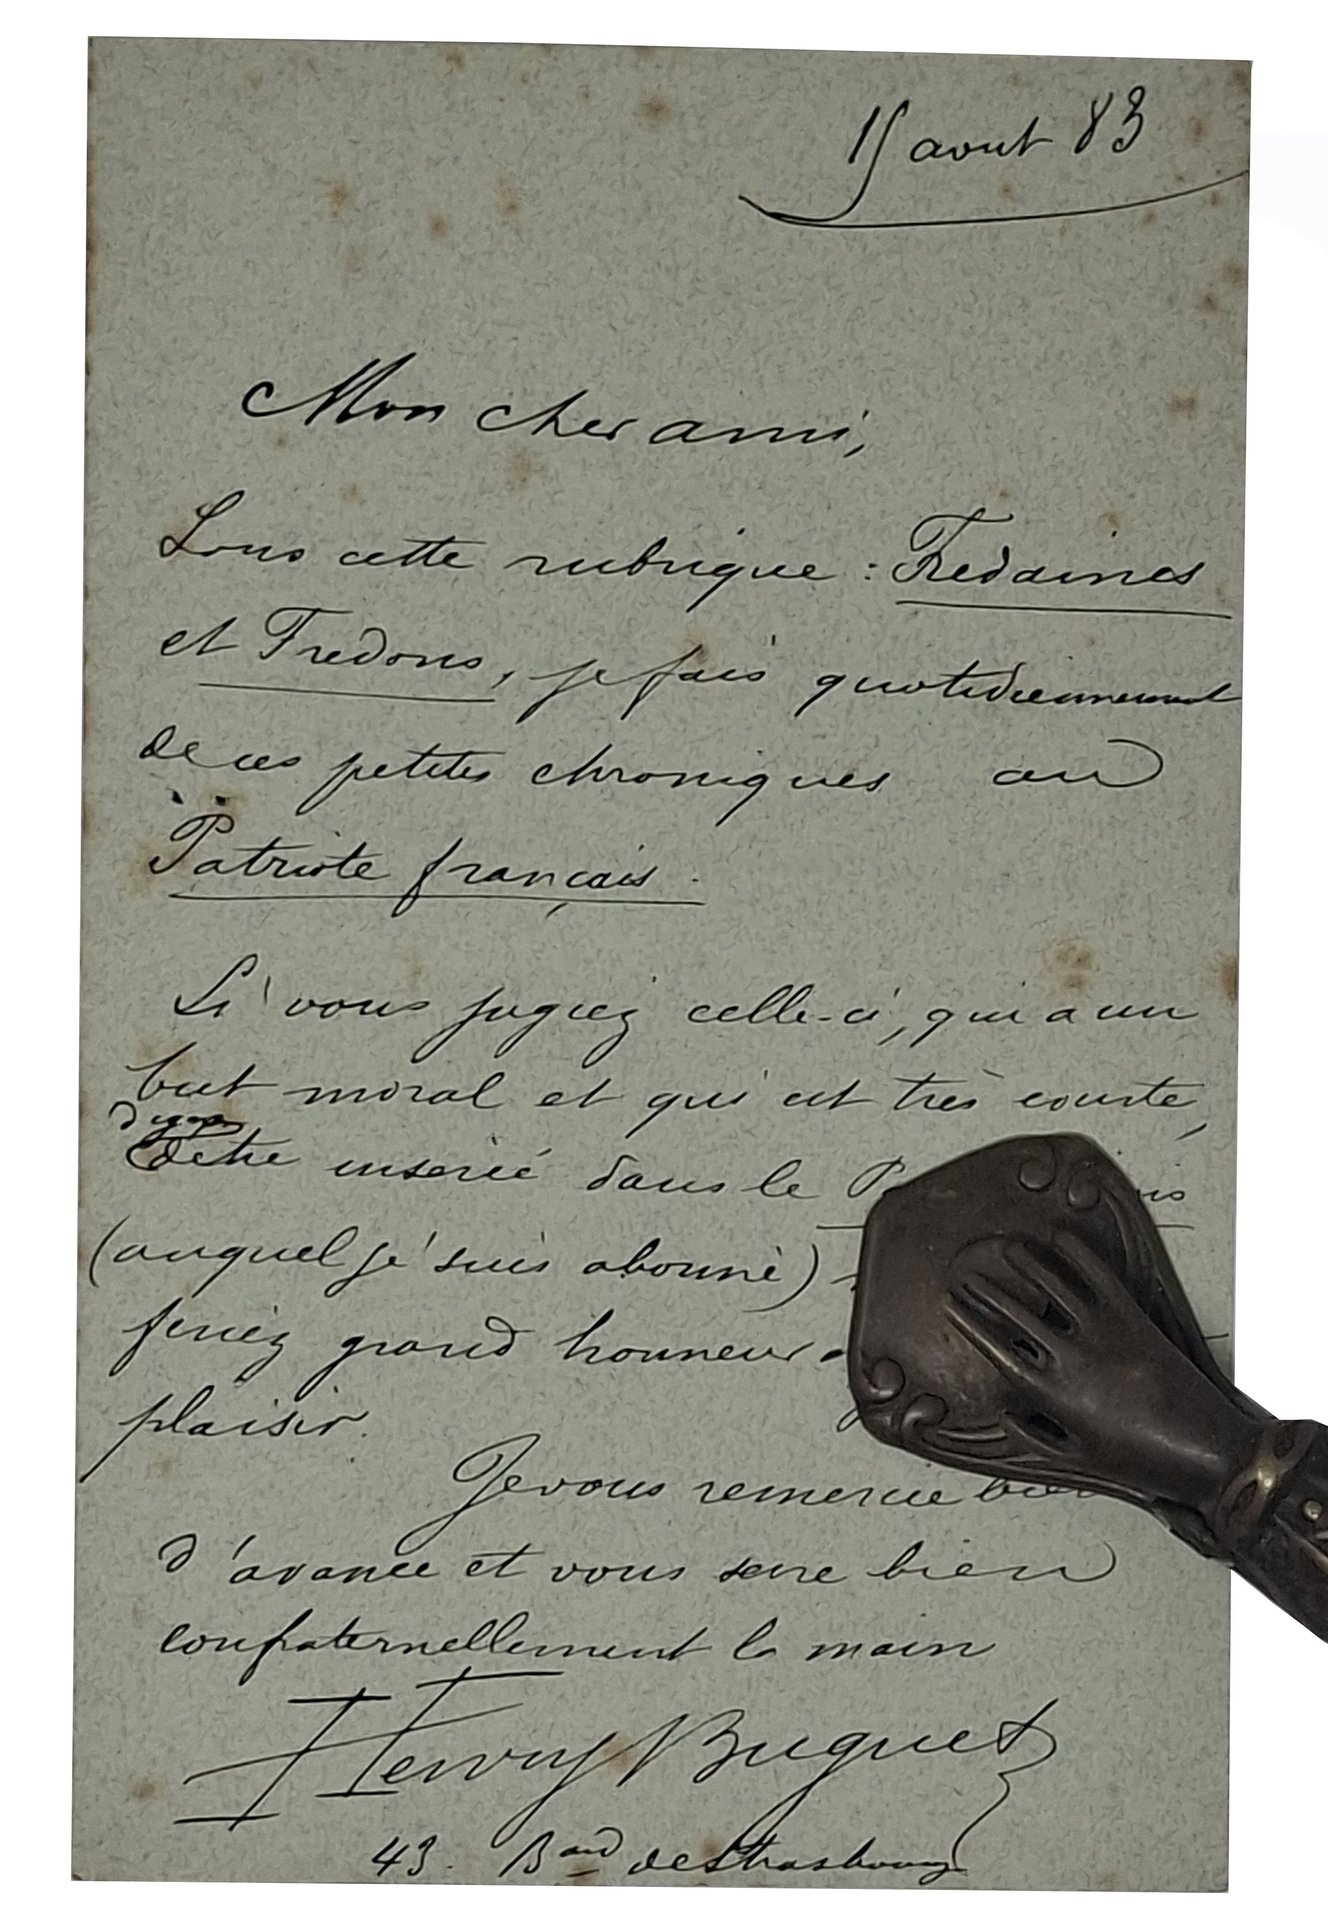 15 aout 83
Mon cher ami,
Sous cette rubrique : Fredaines
et Fredons, je fais quotidiennement
de ces petites chroniques au
Patriote français.
Si vous jugiez celle-ci, qui a un
but moral et qui est très courte,
digne
d'être insérée dans le
(auquel je suis abonné)
feriez grand honneur
plaisir.
Je vous remercie bien
d'avance et vous serre bien
confraternellement la main
Henry Buguet
43. Bard de Strasbourg